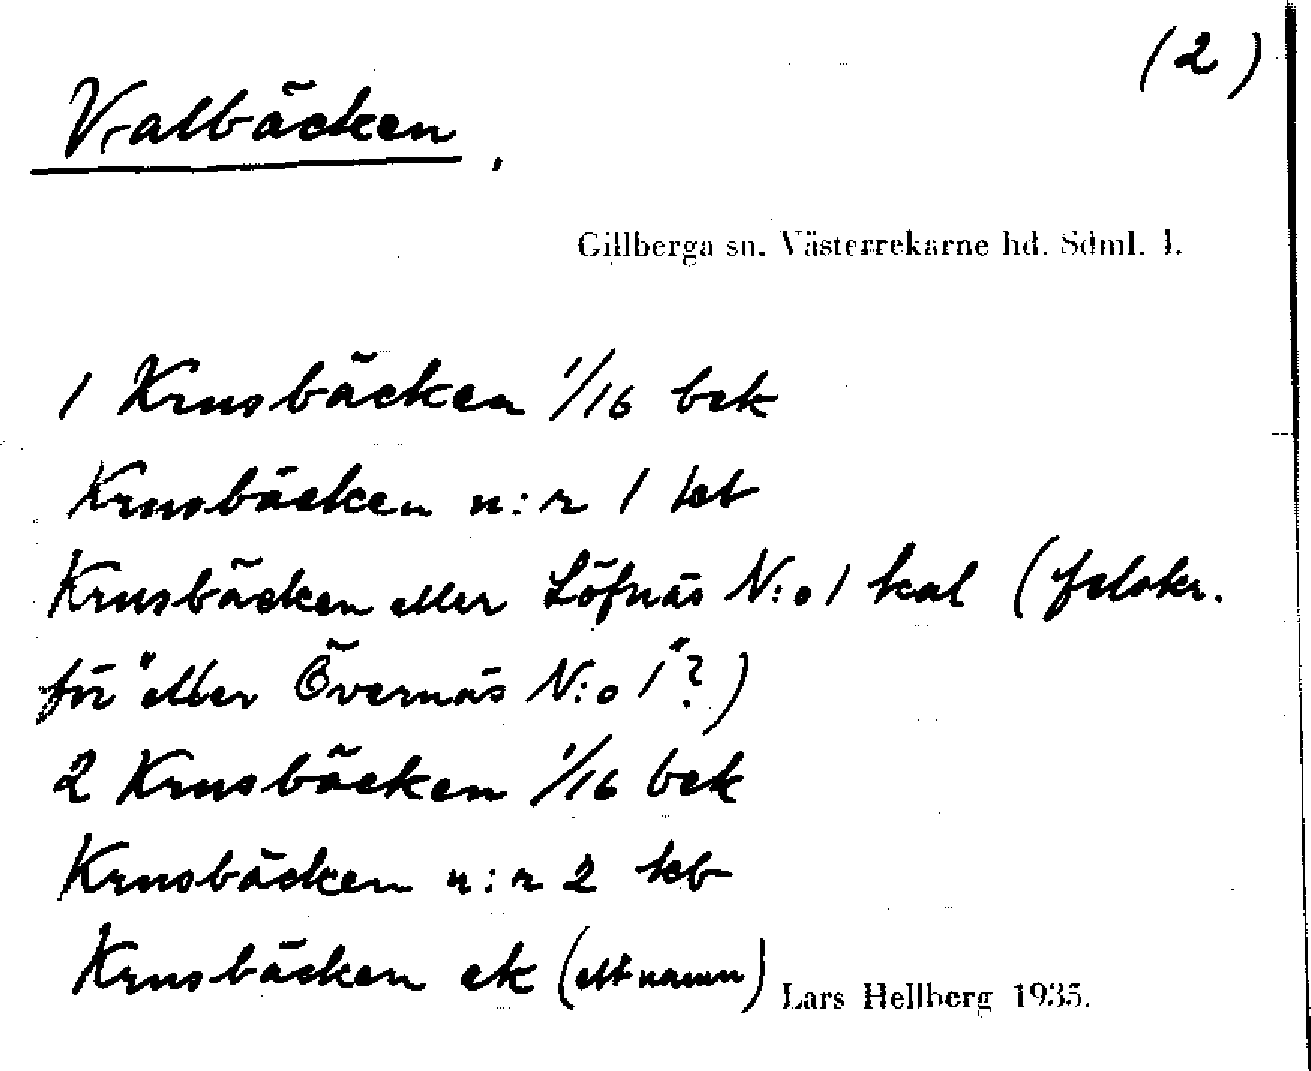 (2)
Valbäcken,
Gillberga sn. Västerrekarne hd. Sdml. l.
1 Krusbäcken 1/16 bek
Krusbäcken n:r 1 kb
Krusbäcken eller Löfnäs N:o 1 kal (felskr.
för "eller Övernäs N:o 1"?)
2 Krusbäcken 1/16 bek
Krusbäcken n:r 2 kb
Krusbäcken ek (ett namn)
Lars Hellberg 1935.